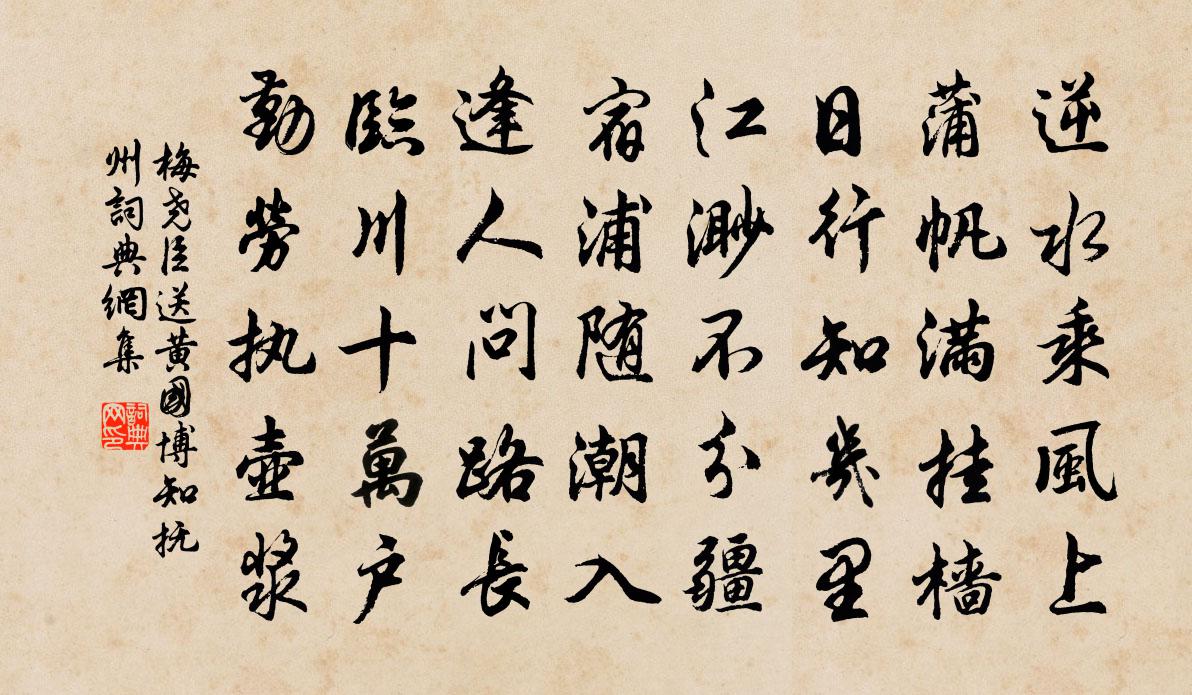 逆水乘風上
蒲帆滿挂檣
日行知幾里
江渺不分疆
宿浦随潮入
逢人問路長
臨川十萬户
勤勞执壺漿
梅尧臣送黄國博知抚
州詞典網集
詞典
网印